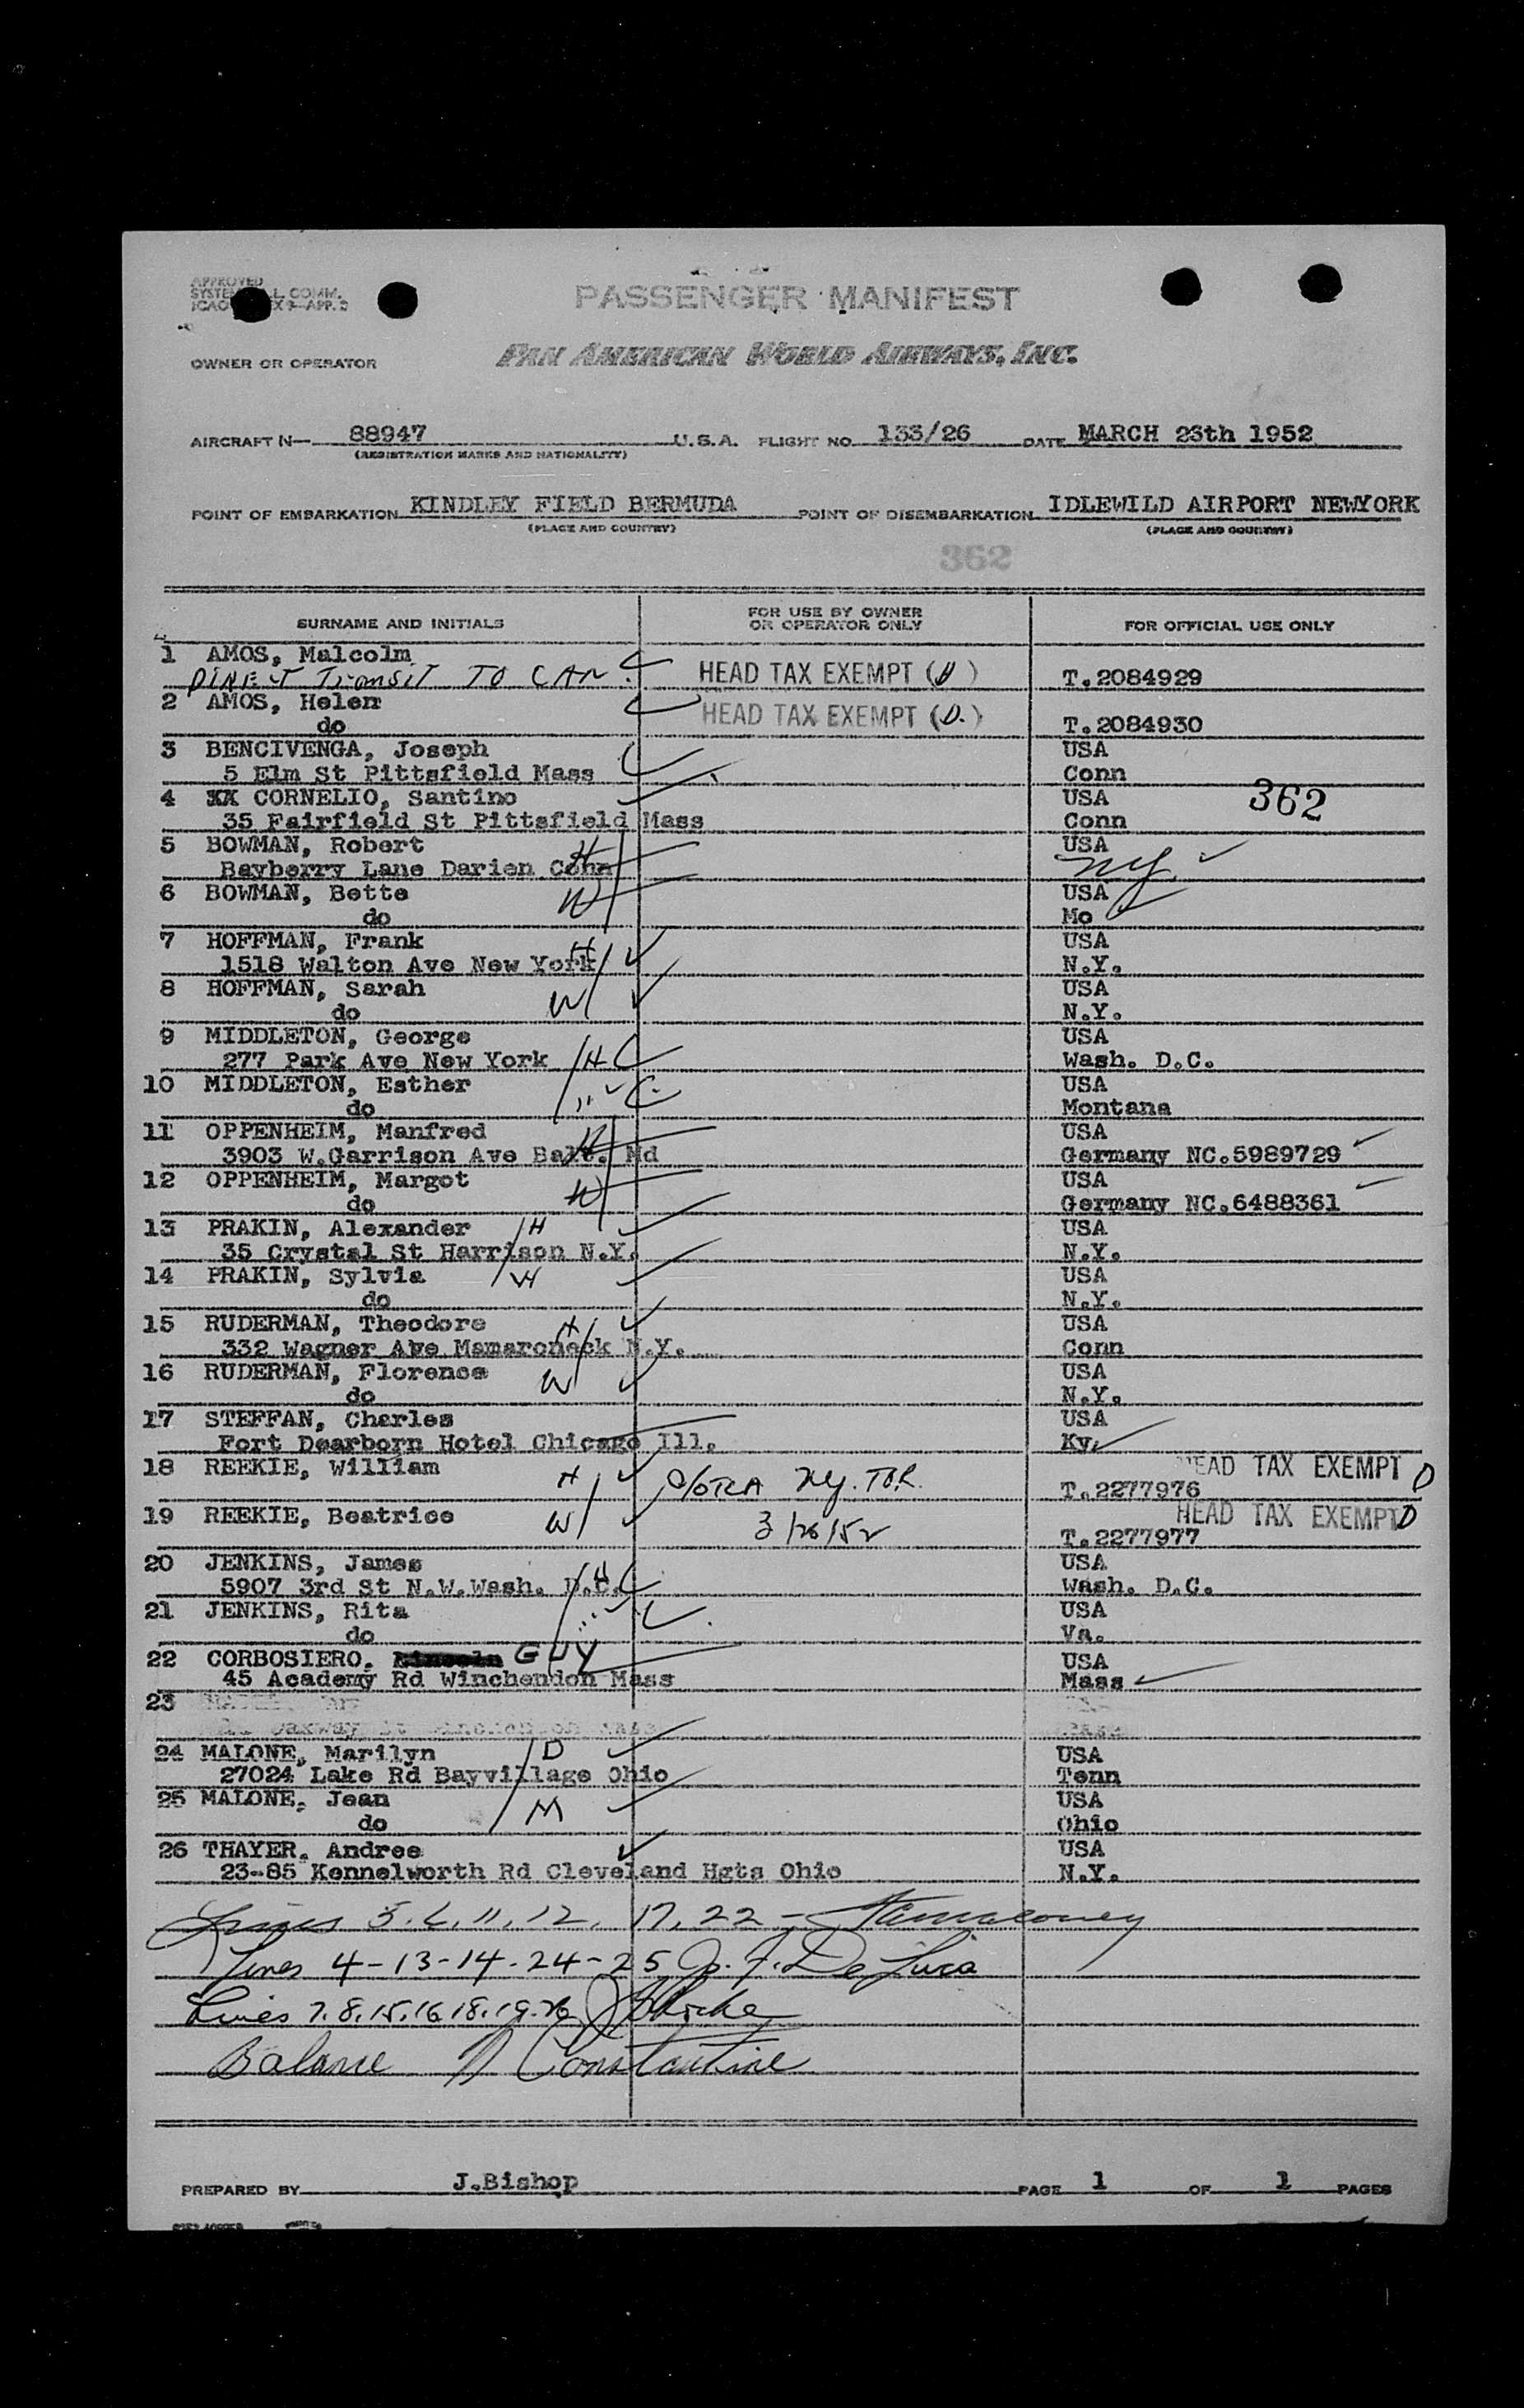 APPROVED
SYSTE L. COMM.
ICAO EX 9—APP. 2
PASSENGER MANIFEST
OWNER OR OPERATOR PAN AMERICAN WORLD AIRWAYS, INC.
AIRCRAFT N— 88947 U.S.A. FLIGHT NO. 133/26 DATE MARCH 26th 1952
(REGISTRATION MARKS AND NATIONALITY)
POINT OF EMBARKATION KINDLEY FIELD BERMUDA POINT OF DISEMBARKATION IDLEWILD AIRPORT NEWYORK
(PLACE AND COUNTRY) (PLACE AND COUNTRY)
362
SURNAME AND INITIALS FOR USE BY OWNER OR OPERATOR ONLY FOR OFFICIAL USE ONLY
1 AMOS, Malcolm
DIRECT Transit TO CAN. HEAD TAX EXEMPT ( ) T.2084929
2 AMOS, Helen HEAD TAX EXEMPT (D.)
do T.2084930
3 BENCIVENGA, Joseph USA
5 Elm St Pittsfield Mass Conn
4 XX CORNELIO, Santino USA 362
35 Fairfield St Pittsfield Mass Conn
5 BOWMAN, Robert H USA
Bayberry Lane Darien Conn NY.
6 BOWMAN, Bette W USA
do Mo
7 HOFFMAN, Frank H USA
1518 Walton Ave New York N.Y.
8 HOFFMAN, Sarah W USA
do N.Y.
9 MIDDLETON, George USA
277 Park Ave New York H Wash. D.C.
10 MIDDLETON, Esther USA
do Montana
11 OPPENHEIM, Manfred H USA
3903 W.Garrison Ave Balt. Md Germany NC.5989729
12 OPPENHEIM, Margot W USA
do Germany NC.6488361
13 PRAKIN, Alexander H USA
35 Crystal St Harrison N.Y. N.Y.
14 PRAKIN, Sylvia W USA
do N.Y.
15 RUDERMAN, Theodore H USA
332 Wagner Ave Mamaroneck N.Y. Conn
16 RUDERMAN, Florence W USA
do N.Y.
17 STEFFAN, Charles USA
Fort Dearborn Hotel Chicago Ill. Ky.
18 REEKIE, William H NY. TOR. HEAD TAX EXEMPT D
T.2277976
19 REEKIE, Beatrice W 3/26/52 HEAD TAX EXEMPT D
T.2277977
20 JENKINS, James USA
5907 3rd St N.W.Wash. D.C. H Wash. D.C.
21 JENKINS, Rita USA
do Va.
22 CORBOSIERO, GUY USA
45 Academy Rd Winchendon Mass Mass
23
24 MALONE, Marilyn D USA
27024 Lake Rd Bayvillage Ohio Tenn
25 MALONE, Jean M USA
do Ohio
26 THAYER, Andree USA
23-85 Kennelworth Rd Cleveland Hgts Ohio N.Y.
Lines 5.6.11.12. 17, 22 -
Lines 4-13-14-24-25 J. F. De Luca
Lines 7.8.15.16.18.19.26
Balance Constantine
PREPARED BY J.Bishop PAGE 1 OF 1 PAGES